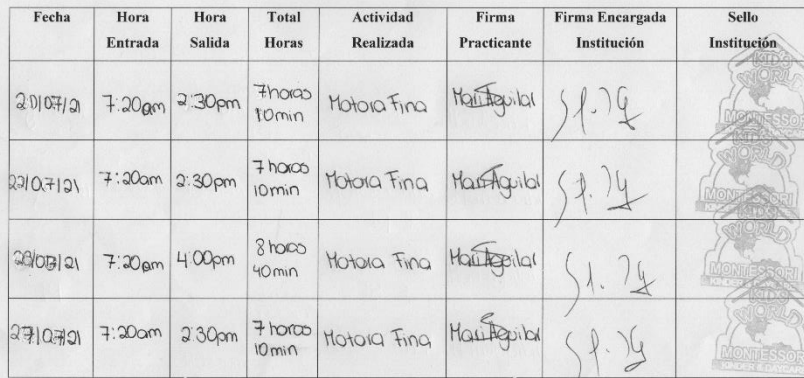 Fecha Hora Entrada Hora Salida Total Horas Actividad Realizada Firma Practicante Firma Encargada Institución Sello Institución
7:20am 2:30pm 7 horas 10min Motora Fina Mari Aguilar KIDS WORLD MONTESSORI
22/07/21 7:20am 2:30pm 7 horas 10min Motora Fina Mari Aguilar KIDS WORLD MONTESSORI
7:20am 4:00pm 8 horas 40min Motora Fina Mari Aguilar KIDS WORLD MONTESSORI
27/07/21 7:20am 2:30pm 7 horas 10min Motora Fina Mari Aguilar KIDS WORLD MONTESSORI KINDER & DAYCARE